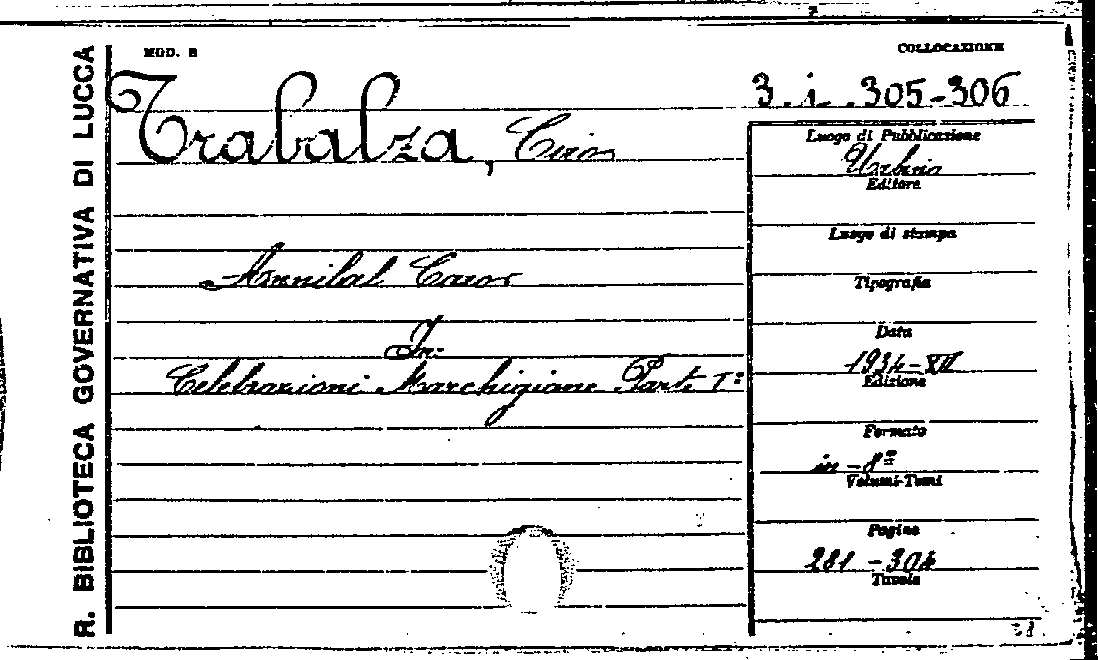 R. BIBLIOTECA GOVERNATIVA DI LUCCA
MOD. B
COLLOCAZIONE
3. i. 305-306
Trabalza, Ciro
Annibal Caro
In:
Celebrazioni Marchigiane Parte Iª
Luogo di Pubblicazione
Urbino
Editore
Luogo di stampa
Tipografia
Data
1934-XII
Edizione
Formato
in-8º
Volumi-Tomi
Pagine
281-304
Tavole